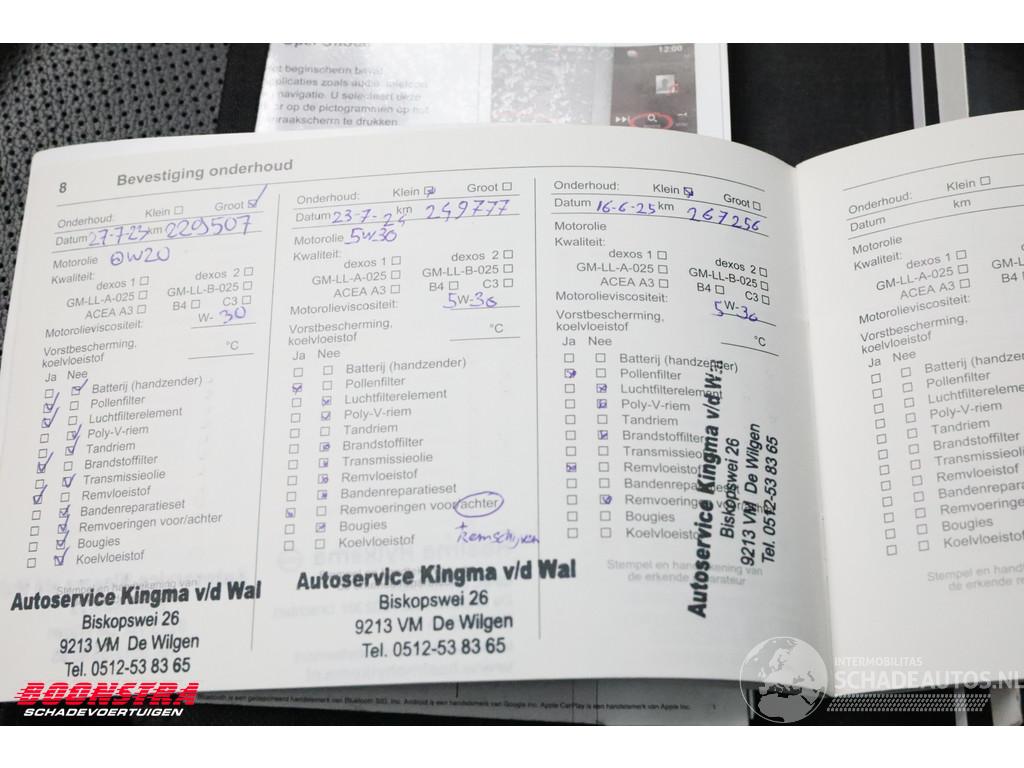 Opel Online.
et beginscherm bevat
plicaties zoals audio, telefoon
navigatie. U selecteert deze
or op de pictogrammen op het
nraakscherm te drukken.
12:00
8 Bevestiging onderhoud
Onderhoud: Klein Groot
Datum 27-7-23 km 229507
Motorolie 0W20
Kwaliteit:
dexos 1 dexos 2
GM-LL-A-025 GM-LL-B-025
ACEA A3 B4 C3
Motorolieviscositeit:
W- 30
Vorstbescherming,
koelvloeistof °C
Ja Nee
Batterij (handzender)
Pollenfilter
Luchtfilterelement
Poly-V-riem
Tandriem
Brandstoffilter
Transmissieolie
Remvloeistof
Bandenreparatieset
Remvoeringen voor/achter
Bougies
Koelvloeistof
Stempel en handtekening van
Autoservice Kingma v/d Wal
Biskopswei 26
9213 VM De Wilgen
Tel. 0512-53 83 65
Onderhoud: Klein Groot
Datum 23-7-24 km 249777
Motorolie 5W30
Kwaliteit:
dexos 1 dexos 2
GM-LL-A-025 GM-LL-B-025
ACEA A3 B4 C3
Motorolieviscositeit:
5W-30
Vorstbescherming,
koelvloeistof °C
Ja Nee
Batterij (handzender)
Pollenfilter
Luchtfilterelement
Poly-V-riem
Tandriem
Brandstoffilter
Transmissieolie
Remvloeistof
Bandenreparatieset
Remvoeringen voor/achter
Bougies + Remschijven
Koelvloeistof
Autoservice Kingma v/d Wal
Biskopswei 26
9213 VM De Wilgen
Tel. 0512-53 83 65
Onderhoud: Klein Groot
Datum 16-6-25 km 267256
Motorolie
Kwaliteit:
dexos 1 dexos 2
GM-LL-A-025 GM-LL-B-025
ACEA A3 B4 C3
Motorolieviscositeit:
5W-30
Vorstbescherming,
koelvloeistof °C
Ja Nee
Batterij (handzender)
Pollenfilter
Luchtfilterelement
Poly-V-riem
Tandriem
Brandstoffilter
Transmissieolie
Remvloeistof
Bandenreparatieset
Remvoeringen voor/achter
Bougies
Koelvloeistof
Stempel en handtekening van
de erkende reparateur
Autoservice Kingma v/d Wal
Biskopswei 26
9213 VM De Wilgen
Tel. 0512-53 83 65
Onderhoud: Klein
Datum km
Motorolie
Kwaliteit:
dexos 1
GM-LL-A-025 GM-LL
ACEA A3 B4
Motorolieviscositeit:
Vorstbescherming,
koelvloeistof
Ja Nee
Batterij (handze
Pollenfilter
Luchtfilterelement
Poly-V-riem
Tandriem
Brandstoffilter
Transmissieolie
Remvloeistof
Bandenreparati
Remvoeringen
Bougies
Koelvloeistof
Stempel en hand
de erkende re
Bluetooth is een gedeponeerd handelsmerk van Bluetooth SIG, Inc. Android is een handelsmerk van Google Inc. Apple CarPlay is een handelsmerk van Apple Inc. 1
BOONSTRA
SCHADEVOERTUIGEN
INTERMOBILITAS
SCHADEAUTOS.NL